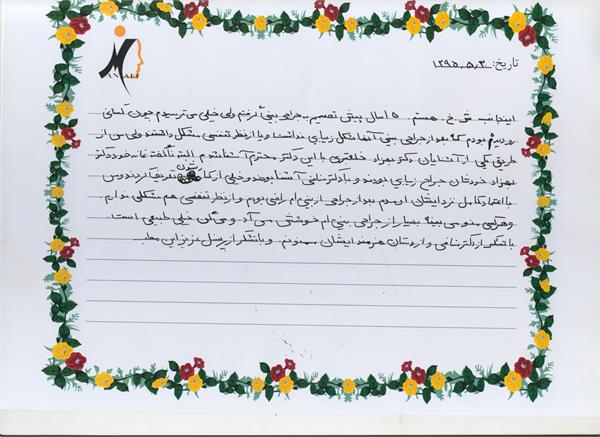 MANAFI
تاریخ: ۱۳۹۵.۵.۳
اینجانب ش. خ. هستم. ۵ سال پیش تصمیم به جراحی بینی گرفتم ولی خیلی می ترسیدم چون کسانی
رو دیده بودم که بعد از جراحی بینی آنها شکل زیبای نداشت و یا از نظر تنفسی مشکل داشتند ولی من از
طریق یکی از آشنایان دکتر بهزاد خلعتبری با این دکتر محترم آشنا شدم البته ناگفته نمانه خود دکتر
بهزاد خودشان جراح زیبای بودند و با دکتر منافی آشنا بودند و خیلی از کارشون تعریف کردند و من
با اعتماد کامل نزد ایشان اومدم بعد از جراحی از بینی ام راضی بودم و از نظر تنفسی هم مشکلی ندارم
و هر کسی منو می بینه بسیار از جراحی بینی ام خوشش می آد و می گن خیلی طبیعی است.
با تشکر از دکتر منافی و از دستان هنرمند ایشان ممنونم. و با تشکر از پرسنل عزیز این مطب